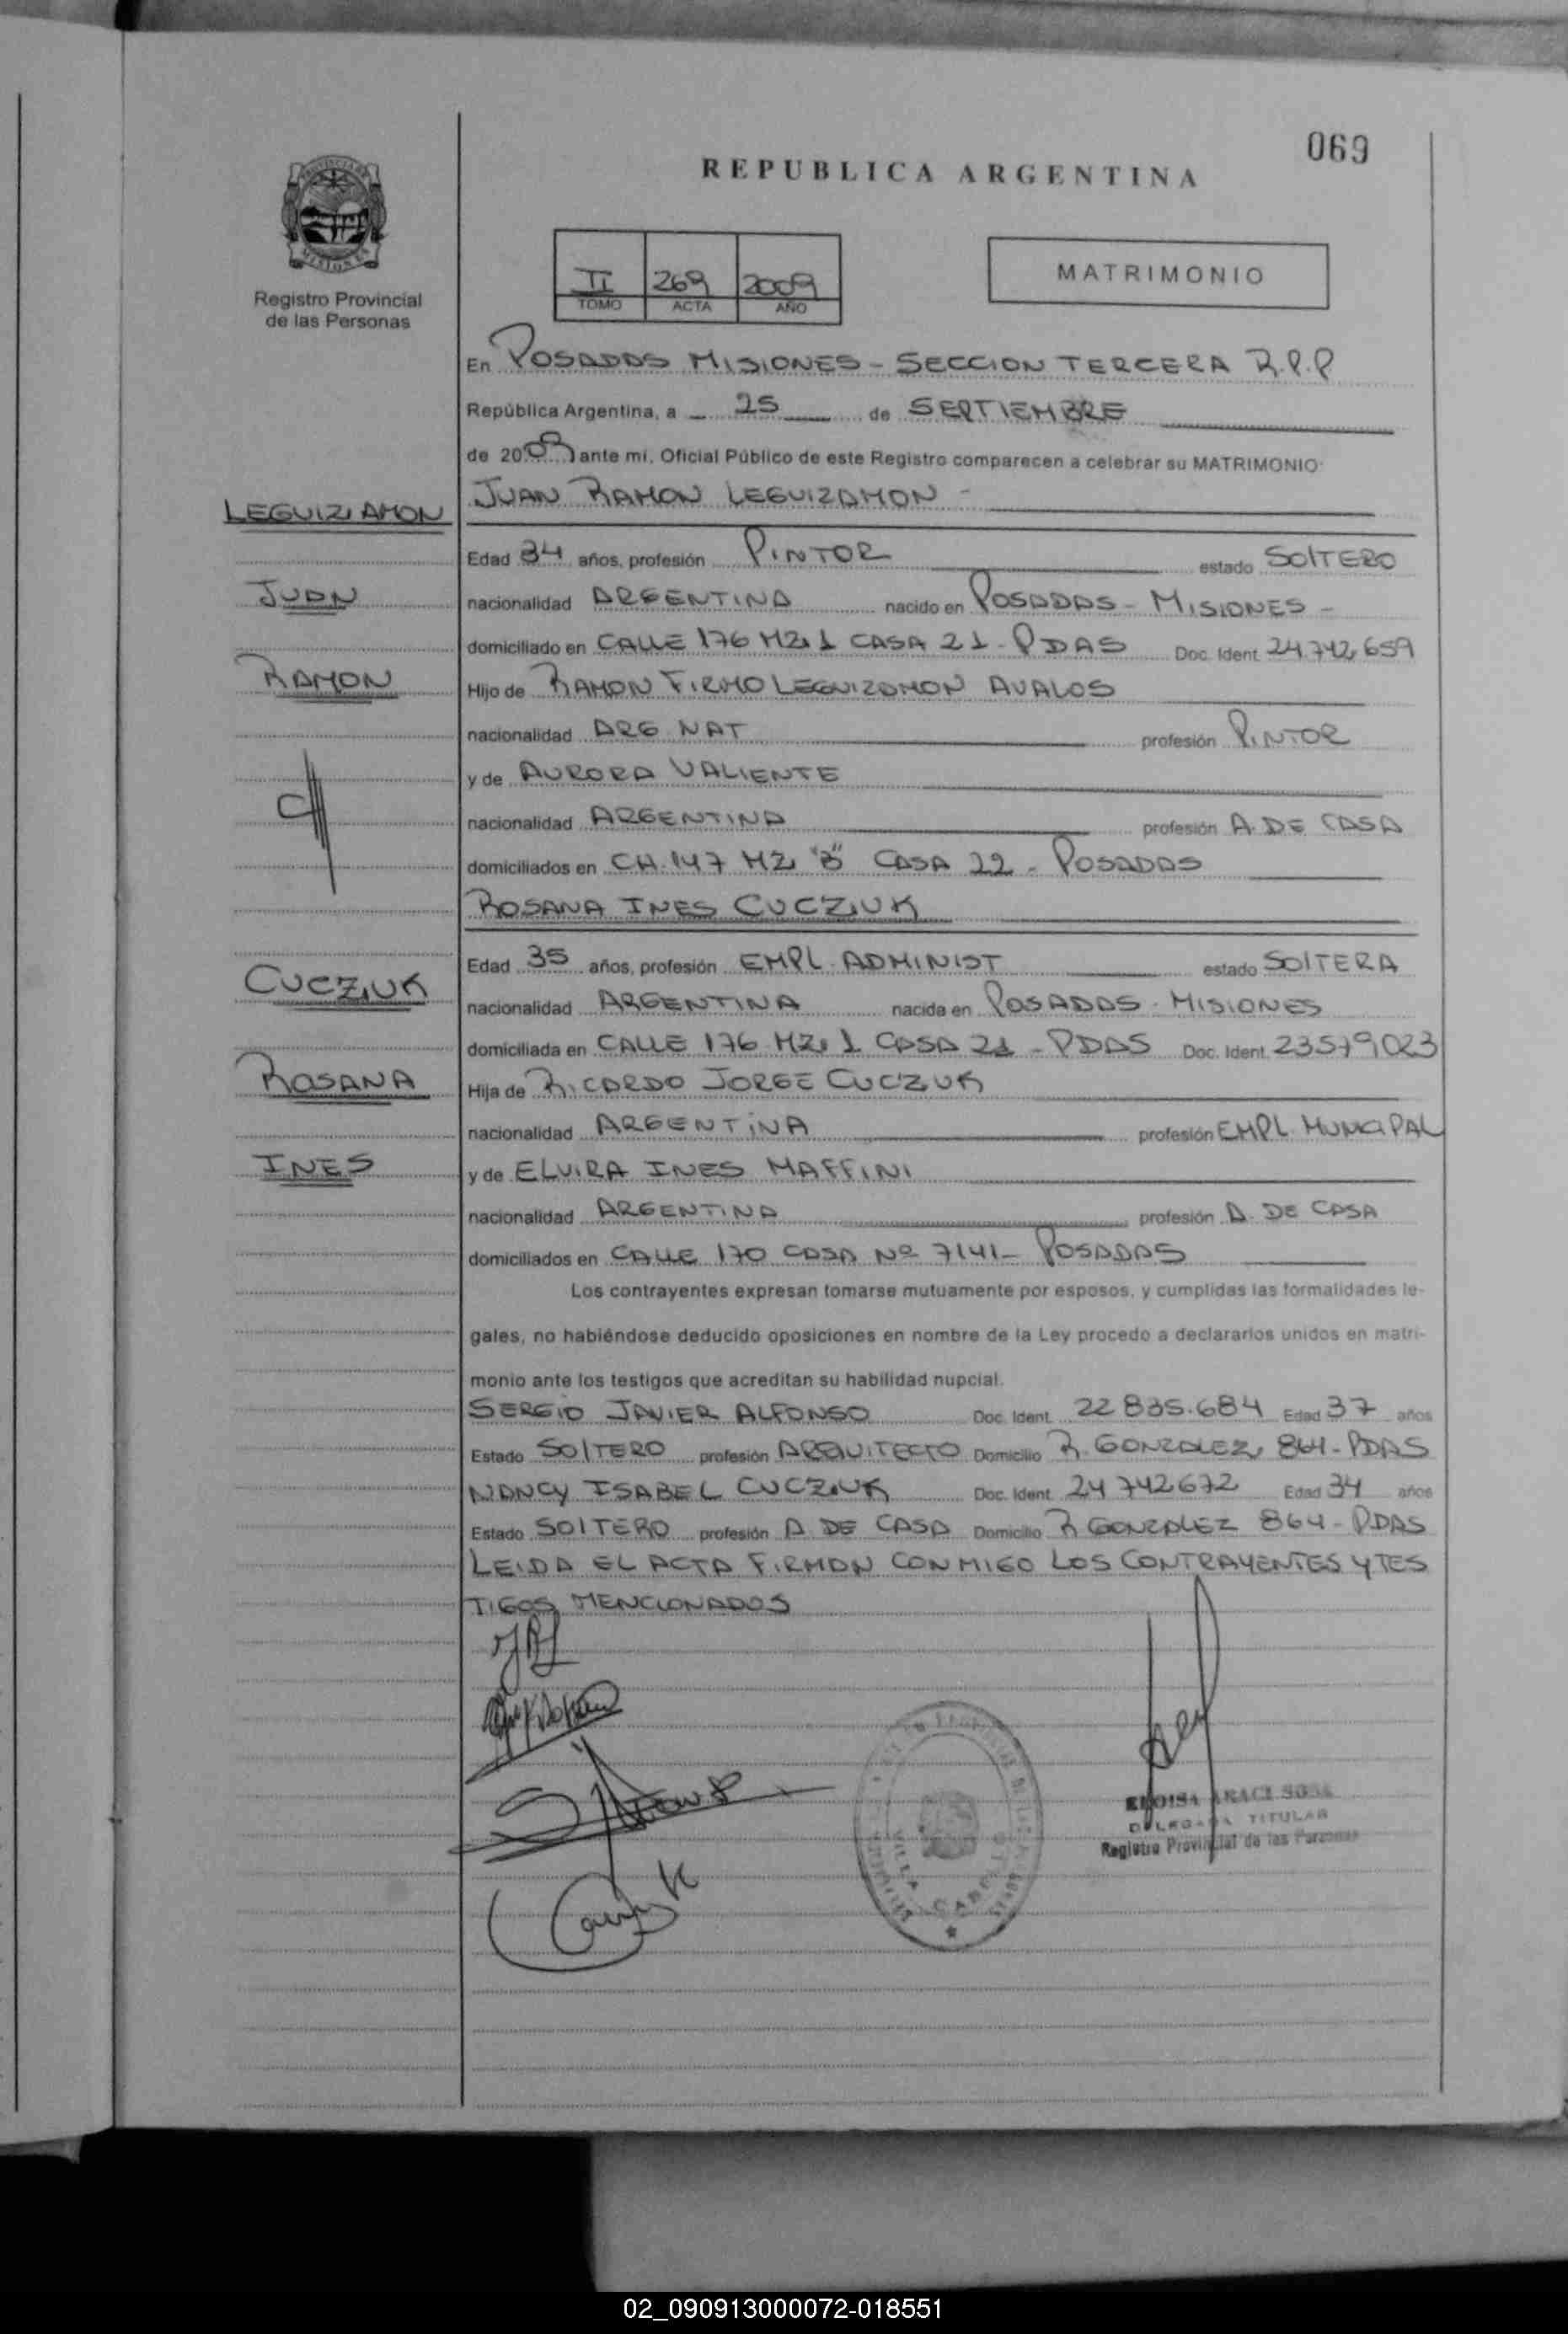 069
REPUBLICA ARGENTINA
PROVINCIA DE
MISIONES
Registro Provincial
de las Personas
II 269 2009
TOMO ACTA AÑO
MATRIMONIO
En POSADAS MISIONES - SECCION TERCERA R.P.P
República Argentina, a 25 de SEPTIEMBRE
de 2009 ante mi, Oficial Público de este Registro comparecen a celebrar su MATRIMONIO
JUAN RAMON LEGUIZAMON -
LEGUIZAMON
Edad 34 años, profesión PINTOR estado SOLTERO
JUAN
nacionalidad ARGENTINA nacido en POSADAS - MISIONES -
domiciliado en CALLE 176 MZ. 1 CASA 21 - PDAS Doc. Ident. 24.742.659
RAMON
Hijo de RAMON FIRMO LEGUIZAMON AVALOS
nacionalidad ARG. NAT profesión PINTOR
y de AURORA VALIENTE
C/
nacionalidad ARGENTINA profesión A. DE CASA
domiciliados en CH. 147 MZ. "B" CASA 22 - POSADAS
ROSANA INES CUCZIUK
Edad 35 años, profesión EMPL. ADMINIST estado SOLTERA
CUCZIUK
nacionalidad ARGENTINA nacida en POSADAS - MISIONES
domiciliada en CALLE 176 MZ. 1 CASA 21 - PDAS Doc. Ident. 23579023
ROSANA
Hija de RICARDO JORGE CUCZUK
nacionalidad ARGENTINA profesión EMPL. MUNICIPAL
INES
y de ELVIRA INES MAFFINI
nacionalidad ARGENTINA profesión A. DE CASA
domiciliados en CALLE 170 CASA Nº 7141 - POSADAS
Los contrayentes expresan tomarse mutuamente por esposos, y cumplidas las formalidades le-
gales, no habiéndose deducido oposiciones en nombre de la Ley procedo a declararlos unidos en matri-
monio ante los testigos que acreditan su habilidad nupcial.
SERGIO JAVIER ALFONSO Doc. Ident. 22 835.684 Edad 37 años
Estado SOLTERO profesión ARQUITECTO Domicilio R. GONZALEZ 864 - PDAS
NANCY ISABEL CUCZIUK Doc. Ident. 24 742672 Edad 34 años
Estado SOLTERO profesión A DE CASA Domicilio R GONZALEZ 864 - PDAS
LEIDA EL ACTA FIRMAN CONMIGO LOS CONTRAYENTES Y TES
TIGOS MENCIONADOS
JRL
ELOISA ARACI SOSA
DELEGADA TITULAR
Registro Provincial de las Personas
VILLA CABELLO
02_090913000072-018551